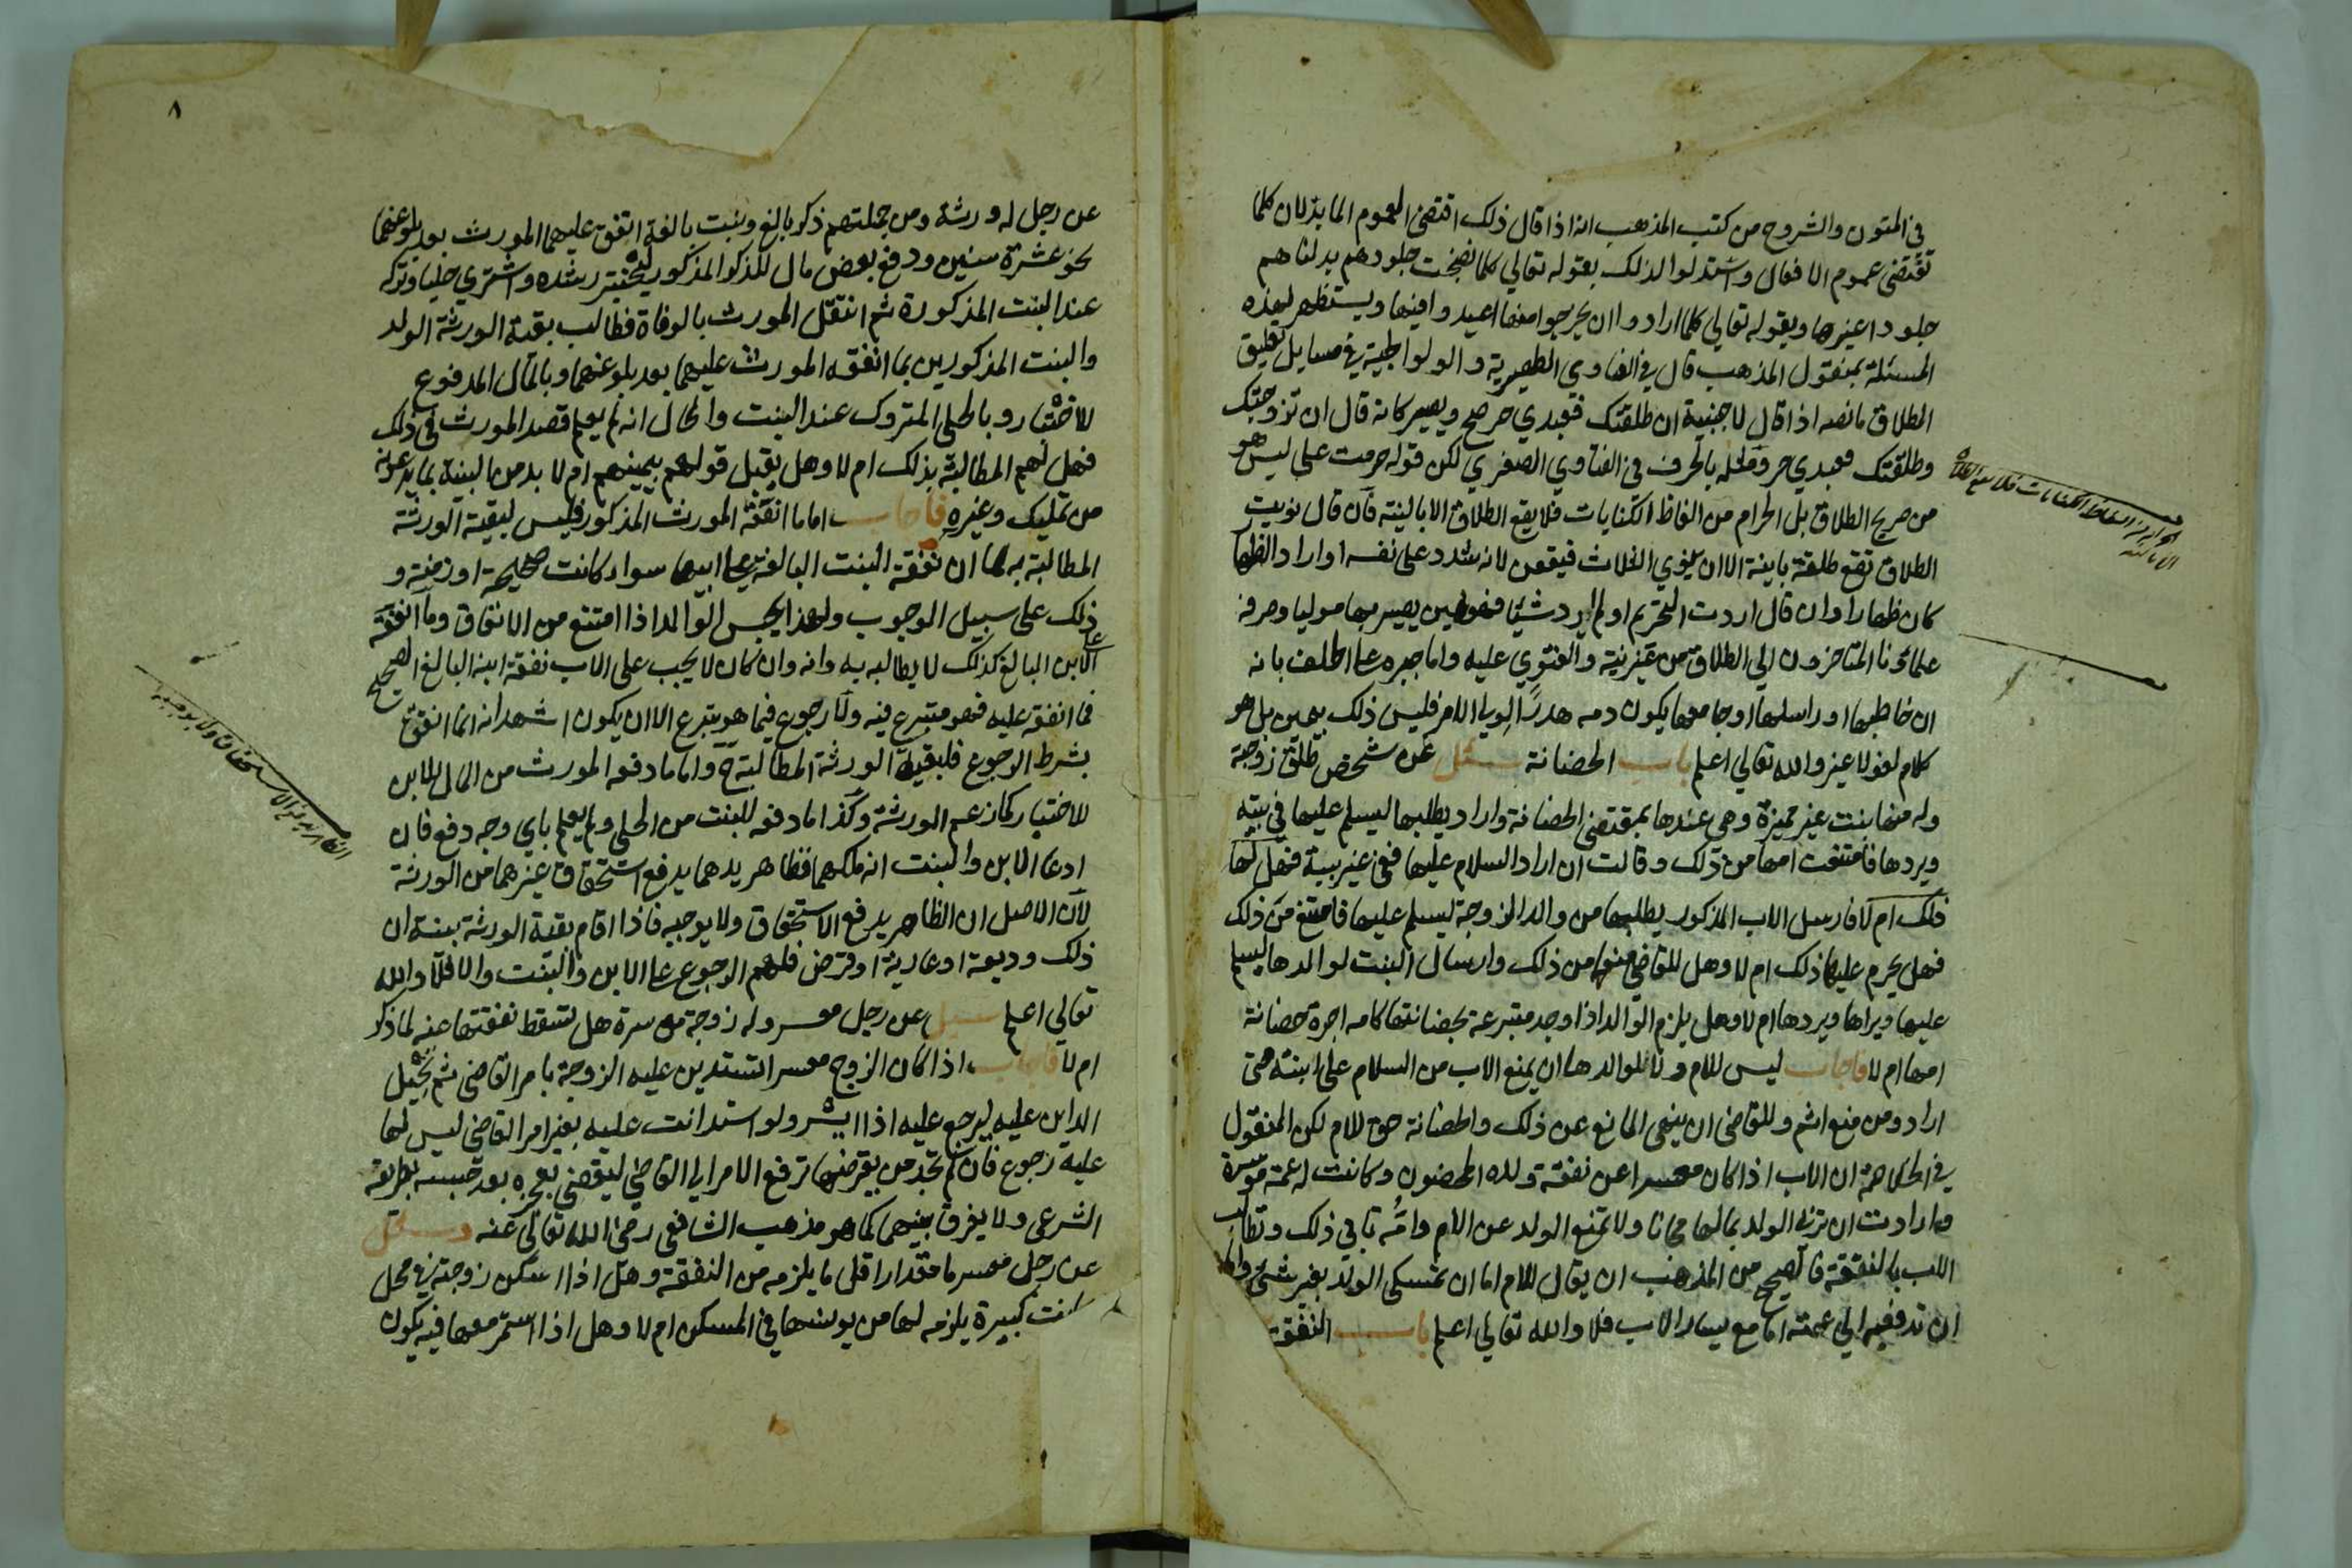 في المتون والشروح من كتب المذهب انه اذا قال ذلك اقتضي العموم الما بدلان كلما
تقتضي عموم الافعال واستدلوا لذلك بقوله تعالي كلما نضجت جلودهم بدلناهم
جلودا غيرها وبقوله تعالي كلما ارادوا ان يخرجوا منها اعيدوا فيها ويستظهر لهذه
المسئلة بمنقول المذهب قال في الفتاوي الظهيرية والولوالجية في مسايل تعليق
الطلاق ما نصه اذا قال لاجنبية ان طلقتك فعبدي حر صح ويصير كانه قال ان تزوجتك
وطلقتك فعبدي حر وقوله بالحرف في الفتاوي الصغري لكن قوله حرمت علي ليس هو
من صريح الطلاق بل الحرام من الفاظ الكنايات فلا يقع الطلاق الا بالنية فان قال نويت
الطلاق تقع طلقة باينة الا ان ينوي الثلاث فيقعن لانه شدد علي نفسه او اراد الظهار
كان ظهارا وان قال اردت التحريم او لم ارد شيئا فهو يمين يصير بها موليا وصرفه
علماؤنا المتاخرون الي الطلاق من غير نية والفتوي عليه واما جبره علي الحلف بانه
ان خاطبها او راسلها او جامعها يكون دمه هدرا لولي الامر فليس ذلك بيمين بل هو
كلام لغو لا غير والله تعالي اعلم باب الحضانة سئل عن شخص طلق زوجة
وله منها بنت غير مميزة وهي عندها بمقتضي الحضانة واراد يطلبها ليسلم عليها في بيته
ويردها فامتنعت امها من ذلك وقالت ان اراد السلام عليها ففي غير بيته فهل لها
ذلك ام لا فارسل الاب المذكور يطلبها من والد الزوجة ليسلم عليها فامتنع من ذلك
فهل يحرم عليهما ذلك ام لا وهل للقاضي منعهما من ذلك وارسال البنت لوالدها ليسلم
عليها ويراها ويردها ام لا وهل يلزم الوالد اذا وجد متبرعة بحضانتها كامه اجرة حضانة
امها ام لا فاجاب ليس للام ولا لوالدها ان يمنع الاب من السلام علي ابنته متي
اراد ومن منع اثم وللقاضي ان ينهي المانع عن ذلك والحضانة حق للام لكن المنقول
في الخلاصة ان الاب اذا كان معسرا عن نفقة ولده المحضون وكانت له عمة موسرة
وارادت ان تربي الولد بمالها مجانا ولا تمنع الولد عن الام وامه تابي ذلك وتطالب
الاب بالنفقة فالصحيح من المذهب ان يقال للام اما ان تمسكي الولد بغير شئ واما
ان تدفعيه الي عمته اما مع يسار الاب فلا والله تعالي اعلم باب النفقة
الحرام من الفاظ الكنايات فلا يقع الطلاق
الا بالنية
٨
عن رجل له ورثة ومن جملتهم ذكر بالغ وبنت بالغة انفق عليهما المورث بعد بلوغهما
نحو عشرة سنين ودفع بعض مال للذكر المذكور ليختبر رشده واشتري حليا وتركه
عند البنت المذكورة ثم انتقل المورث بالوفاة فطالب بقية الورثة الولد
والبنت المذكورين بما انفقه المورث عليهما بعد بلوغهما وبالمال المدفوع
للاختبار وبالحلي المتروك عند البنت والحال انه لم يعلم قصد المورث في ذلك
فهل لهم المطالبة بذلك ام لا وهل يقبل قولهم بيمينهم ام لا بد من البينة بما يدعونه
من تمليك وغيره فاجاب اما ما انفقه المورث المذكور فليس لبقية الورثة
المطالبة به لما ان نفقة البنت البالغة علي ابيها سواء كانت صحيحة او زمنة و
ذلك علي سبيل الوجوب ولهذا يحبس الوالد اذا امتنع من الانفاق وما انفقه
علي الابن البالغ كذلك لا يطالب به وانه وان كان لا يجب علي الاب نفقة ابنه البالغ الصحيح
فما انفقه عليه فهو متبرع فيه ولا رجوع فيما هو يتبرع الا ان يكون اشهد انه انما انفق
بشرط الرجوع فلبقية الورثة المطالبة ح واما ما دفعه المورث من المال للابن
للاختبار كما زعم الورثة وكذا ما دفعه للبنت من الحلي ولم يعلم باي وجه دفع فان
ادعا الابن والبنت انه ملكهما فظاهر يدهما يدفع استحقاق غيرهما من الورثة
لان الاصل ان الظاهر يدفع الاستحقاق ولا يوجبه فاذا اقام بقية الورثة بينة ان
ذلك وديعة او عارية او قرض فلهم الرجوع علي الابن والبنت والا فلا والله
تعالي اعلم سيل عن رجل معسر وله زوجة موسرة هل تسقط نفقتها عنه لما ذكر
ام لا فاجاب اذا كان الزوج معسرا تستدين عليه الزوجة بامر القاضي ثم تحيل
الداين عليه ليرجع عليه اذا ايسر ولو استدانت عليه بغير امر القاضي ليس لها
عليه رجوع فان لم تجد من يقرضها ترفع الامر الي القاضي ليقضي بعجزه بعد حبسه بطريقه
الشرعي ولا يفرق بينهما كما هو مذهب الشافعي رضي الله تعالي عنه وسئل
عن رجل معسر ما مقدار اقل ما يلزمه من النفقة وهل اذا اسكن زوجته في محل
كانت كبيرة يلزمه لها من يونسها في المسكن ام لا وهل اذا استمر معها فيه يكون
الظاهر يدفع الاستحقاق ولا يوجبه